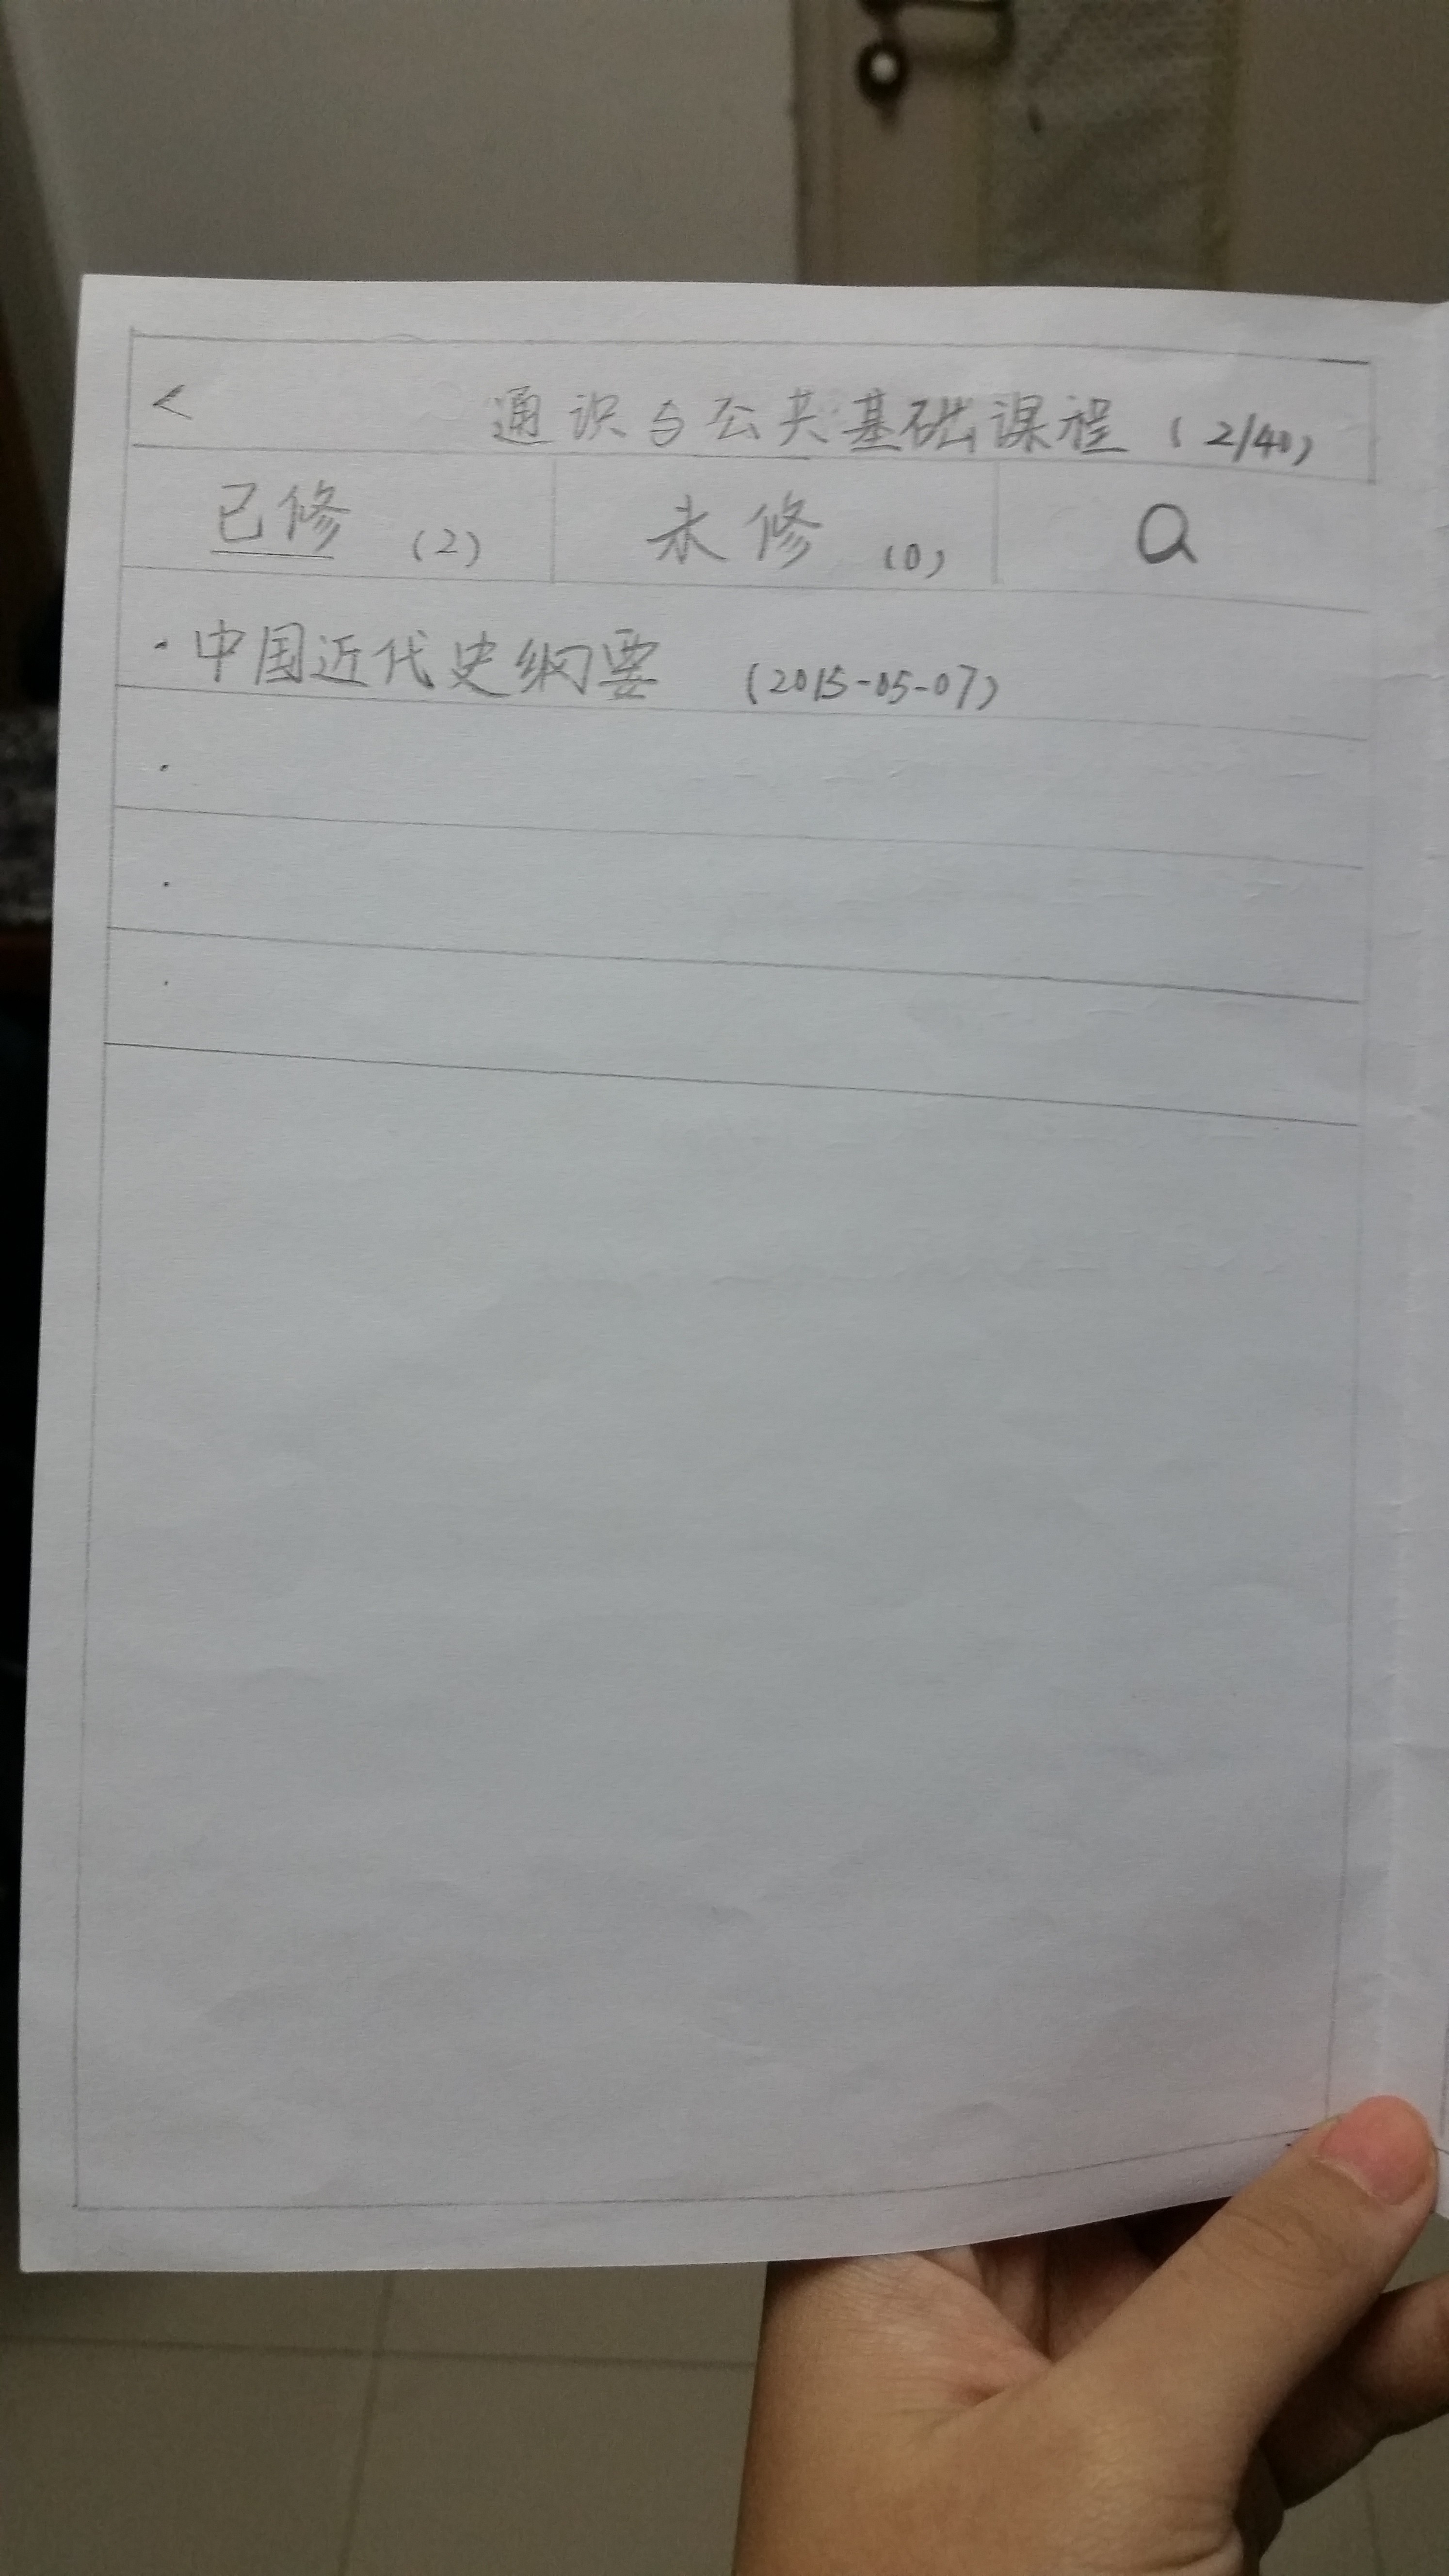 < 通识与公共基础课程 (2/40)
已修 (2) 未修 (0) Q
· 中国近代史纲要 (2015-05-07)
·
·
·